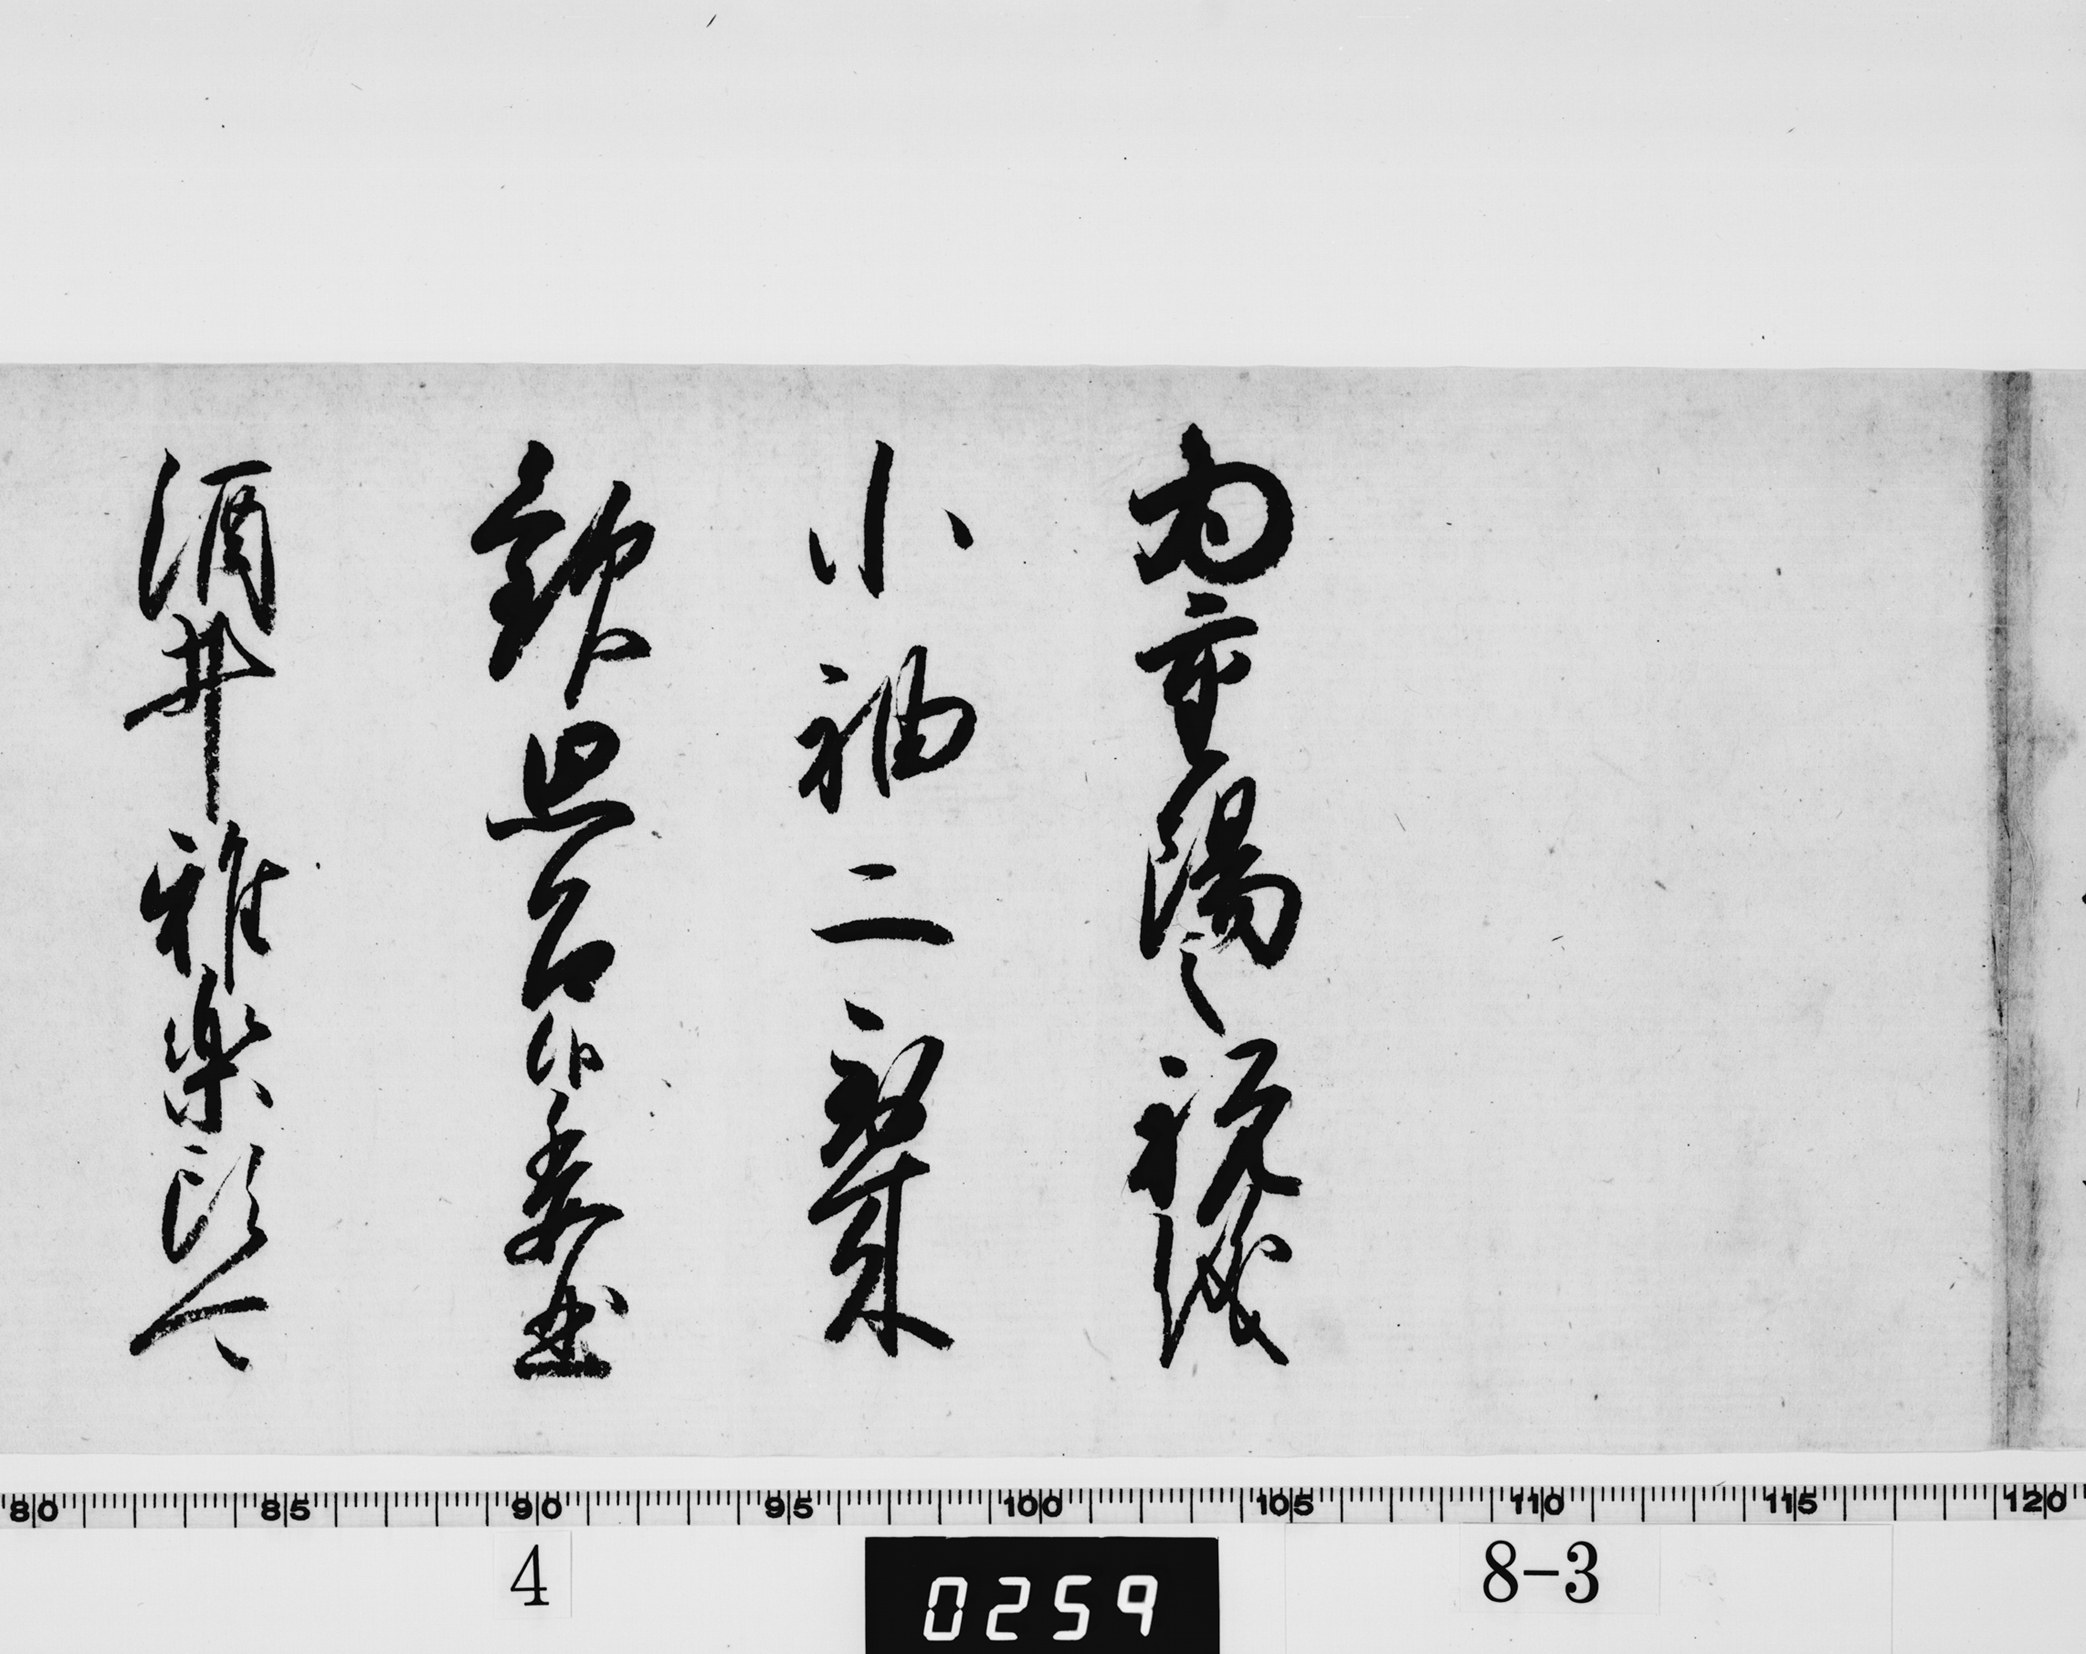 為重陽之祝儀
小袖二到来
歓思召候委曲
酒井雅楽頭可
80 85 90 95 100 105 110 115 120
4 0259 8-3